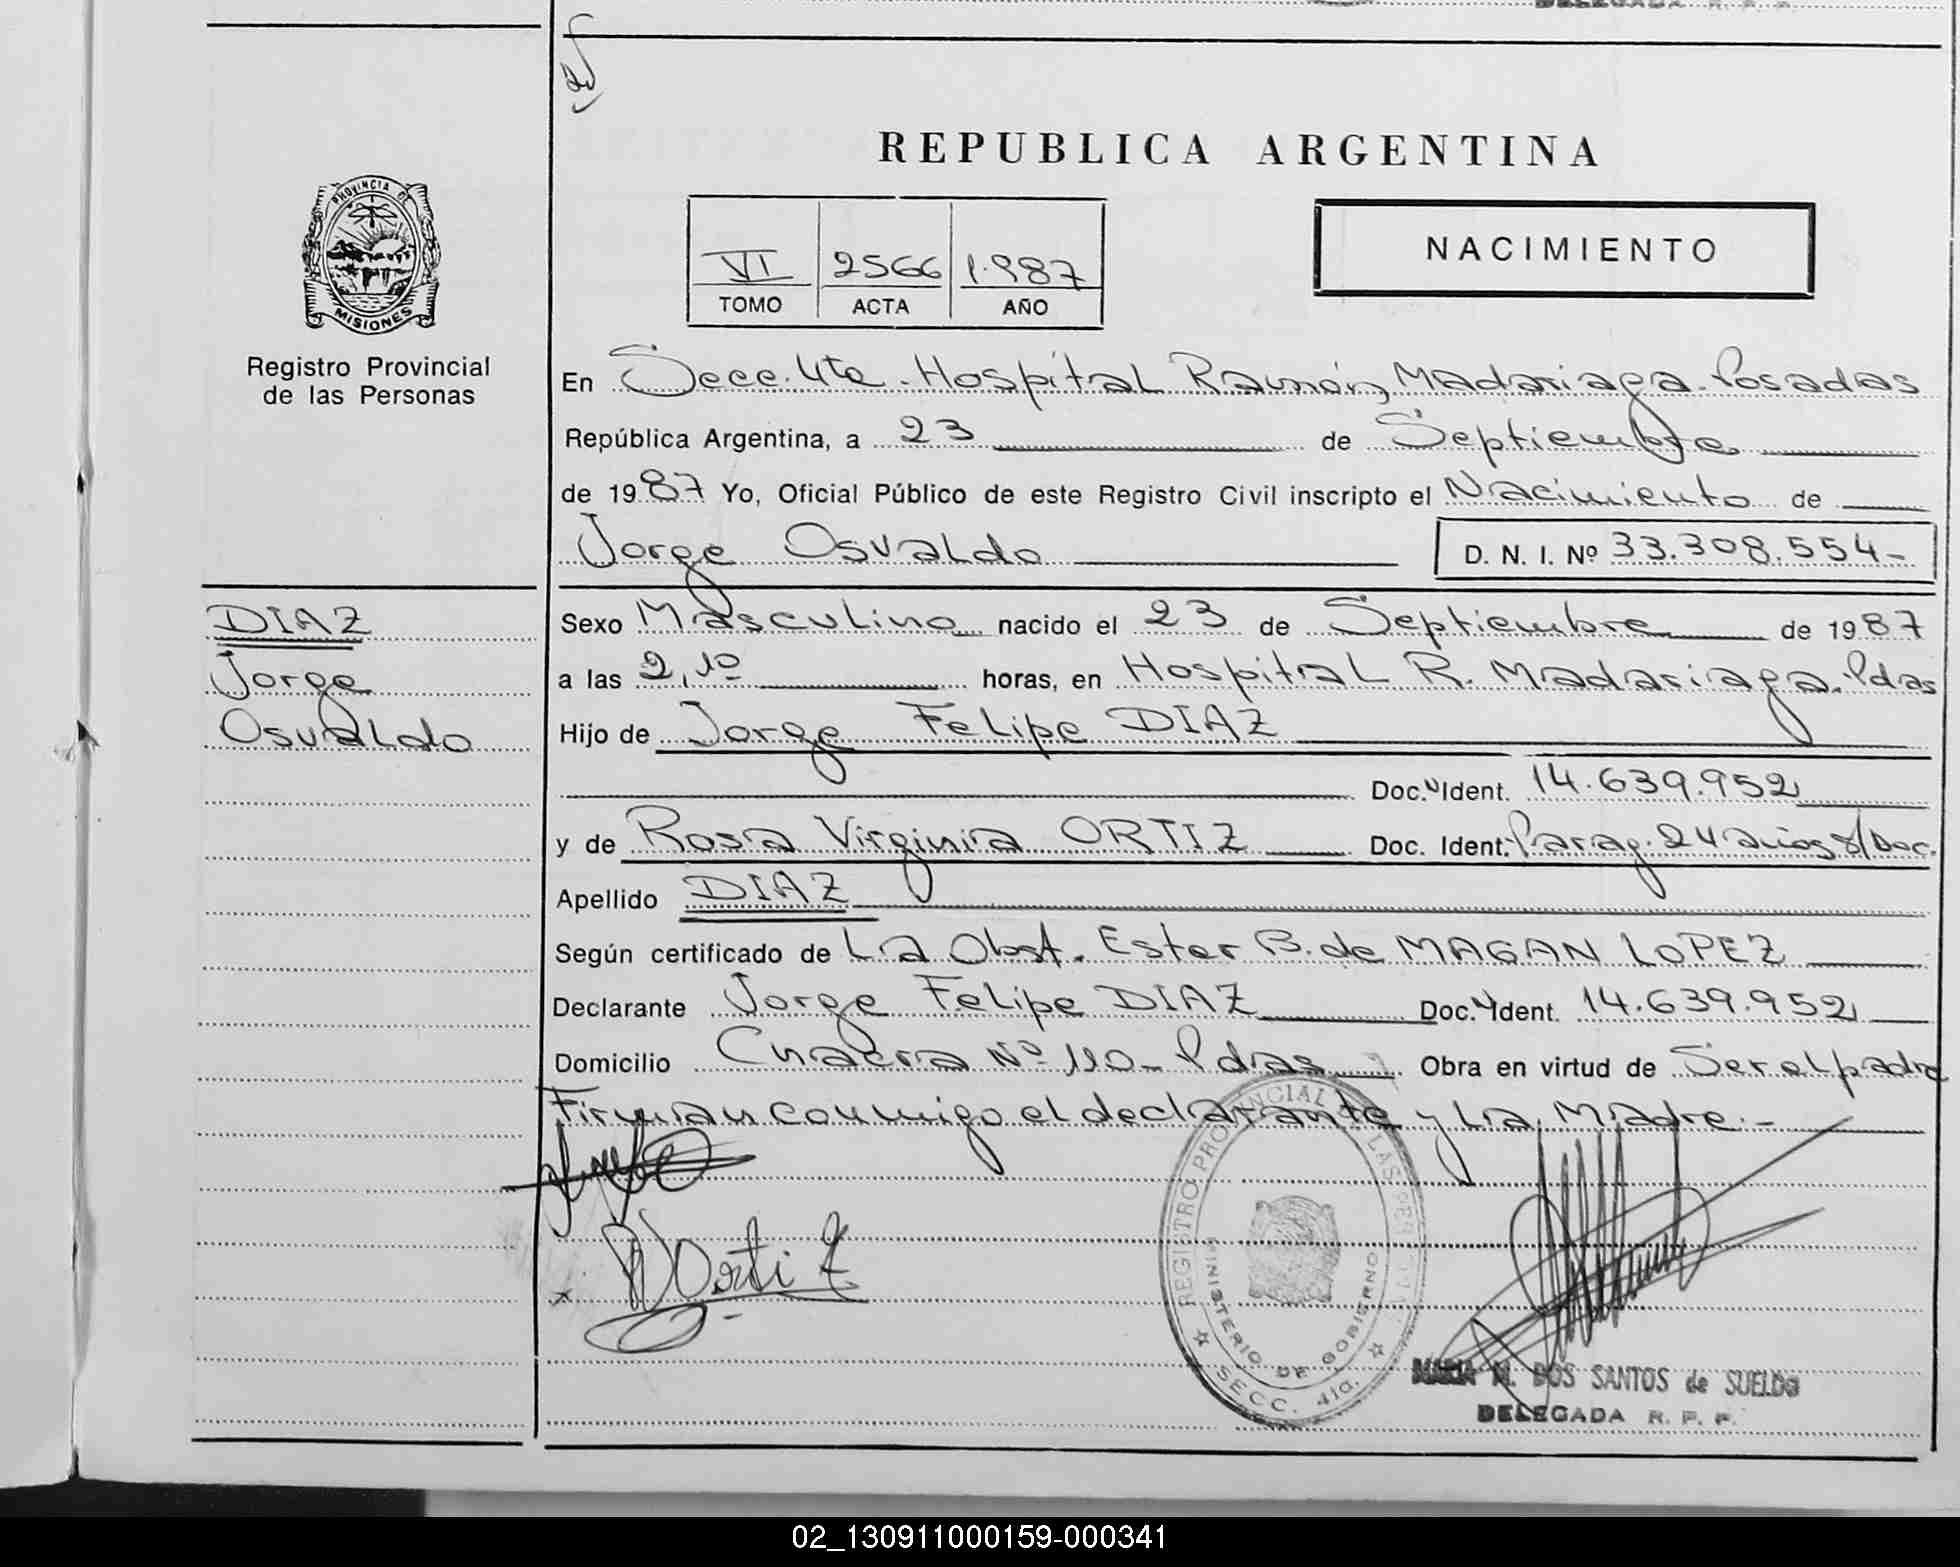 REPUBLICA ARGENTINA
PROVINCIA DE
MISIONES
Registro Provincial
de las Personas
VI 2566 1.987
TOMO ACTA AÑO
NACIMIENTO
En Secc. 4ta. Hospital Ramón Madariaga. Posadas
República Argentina, a 23 de Septiembre
de 1987 Yo, Oficial Público de este Registro Civil inscripto el Nacimiento de
Jorge Osvaldo D. N. I. Nº 33.308.554-
DIAZ
Jorge
Osvaldo
Sexo Masculino nacido el 23 de Septiembre de 1987
a las 2,10 horas, en Hospital R. Madariaga. Pdas
Hijo de Jorge Felipe DIAZ
Doc. Ident. 14.639.952
y de Rosa Virginia ORTIZ Doc. Ident. Parag. 24 años s/Doc.
Apellido DIAZ
Según certificado de La Obst. Ester B. de MAGAN LOPEZ
Declarante Jorge Felipe DIAZ Doc. Ident. 14.639.952
Domicilio Chacra Nº 110- Pdas Obra en virtud de Ser el padre
Firman conmigo el declarante y La Madre.-
Ortiz
REGISTRO PROVINCIAL DE LAS PERSONAS
MINISTERIO DE GOBIERNO
SECC. 4ta.
MARIA M. DOS SANTOS de SUELDO
DELEGADA R. P. P.
02_130911000159-000341